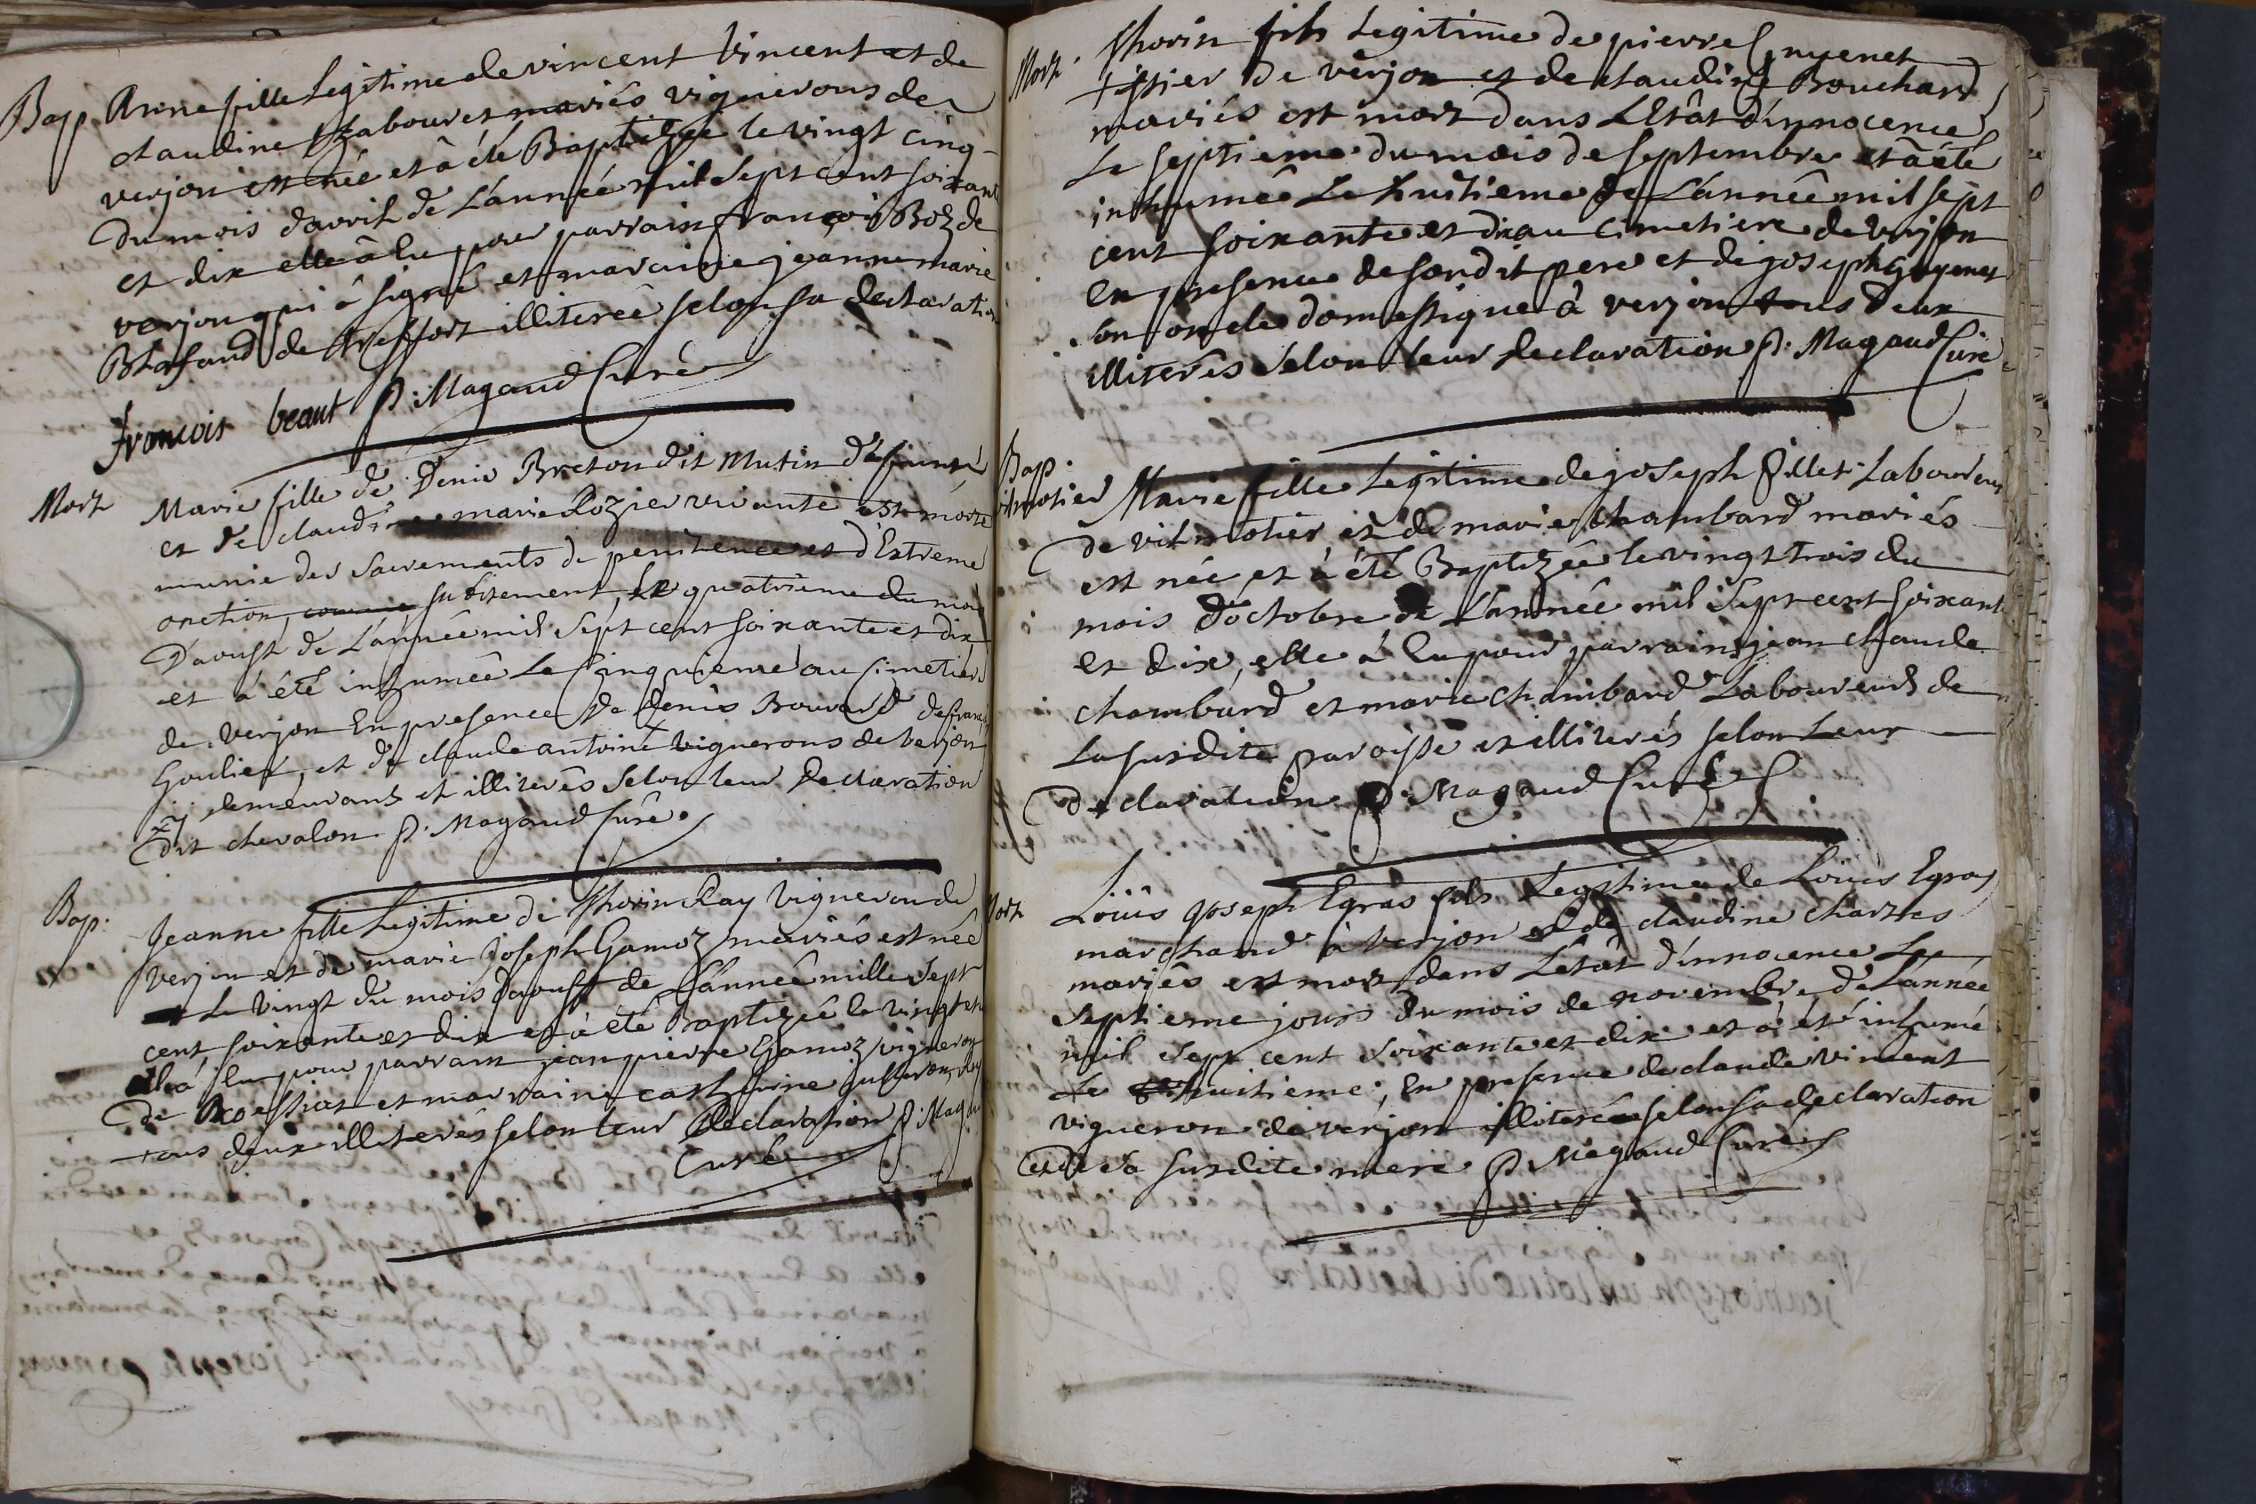 Bap. Anne fille Legitime de vincent Vincent et de
claudine mariés vignerons de
verjon est née et à été Baptizée le vingt cinq
Du mois d'avril de L'année mil sept cent soixante
et dix elle â Eu pour parrain françois Boz de
verjon qui â signé et maraine jeanne marie
de treffort illiterée selon sa declaration
francois beaut P. Magaud Curé
Mort Marie fille de Denis Breton dit Mutin deffunt
et de claudine marie Rozier vivante est morte
munie des Sacrements de penitence et d'Extreme
onction, subitement, Le quatrieme du mois
D'aoust de L'année mil Sept cent soixante et dix
et à été inhumée Le Cinquieme au Cimetiere
de Verjon En presence De Denis Bouvard
et De claude antoine vignerons de verjon
demeurans et illiterés selon leur Declaration
dit chevalon P. Magaud Curé.
Bap. Jeanne fille Legitime de Thorin Ray Vigneron de
Verjon et de marie Joseph Gamoz mariés est née
Le vingt du mois d'aoust de L'année mille Sept
cent soixante et dix et à été Baptizée le vingt
elle â Eu pour parrain jean pierre Gamoz vigneron
De et marraine catherine
tous deux illiterés selon leur Declaration P. Magaud
Curé
Mort. Thorin fils Legitime de pierre Guyenet
tissier de verjon et de claudine Bouchard
mariés est mort dans L'Etât d'innocence
Le septieme du mois de septembre et â été
inhumé Le huitieme de L'année mil sept
cent soixante et dix au Cimetiere de Verjon
en presence de son dit pere et de joseph Guyenet
son oncle domestique à verjon tous deux
illiterés Selon leur declaration P. Magaud Curé
Bap.
vilmotier Marie fille Legitime de joseph Pillet Laboureur
De vilmotier et de marie Chambard mariés
est née et à été Baptizée le vingt trois du
mois d'octobre de L'année mil Sept cent soixante
et dix, elle à Eu pour parrain jean claude
Chambard et marie Chambard Laboureurs de
La susdite paroisse et illiterés selon Leur
Declaration P. Magaud Curé
Mort Loüis Joseph Egras fils Legitime de Loüis Egras
marchand à Verjon et de claudine Chartes
mariés est mort dans L'etât d'innocence Le
Septieme jours du mois de novembre de L'année
mil Sept cent Soixante et dix et à été inhumé
Le huitieme; En presence de claude vincent
vigneron de verjon illiteré selon sa declaration
et de sa susdite mere P. Magaud Curé